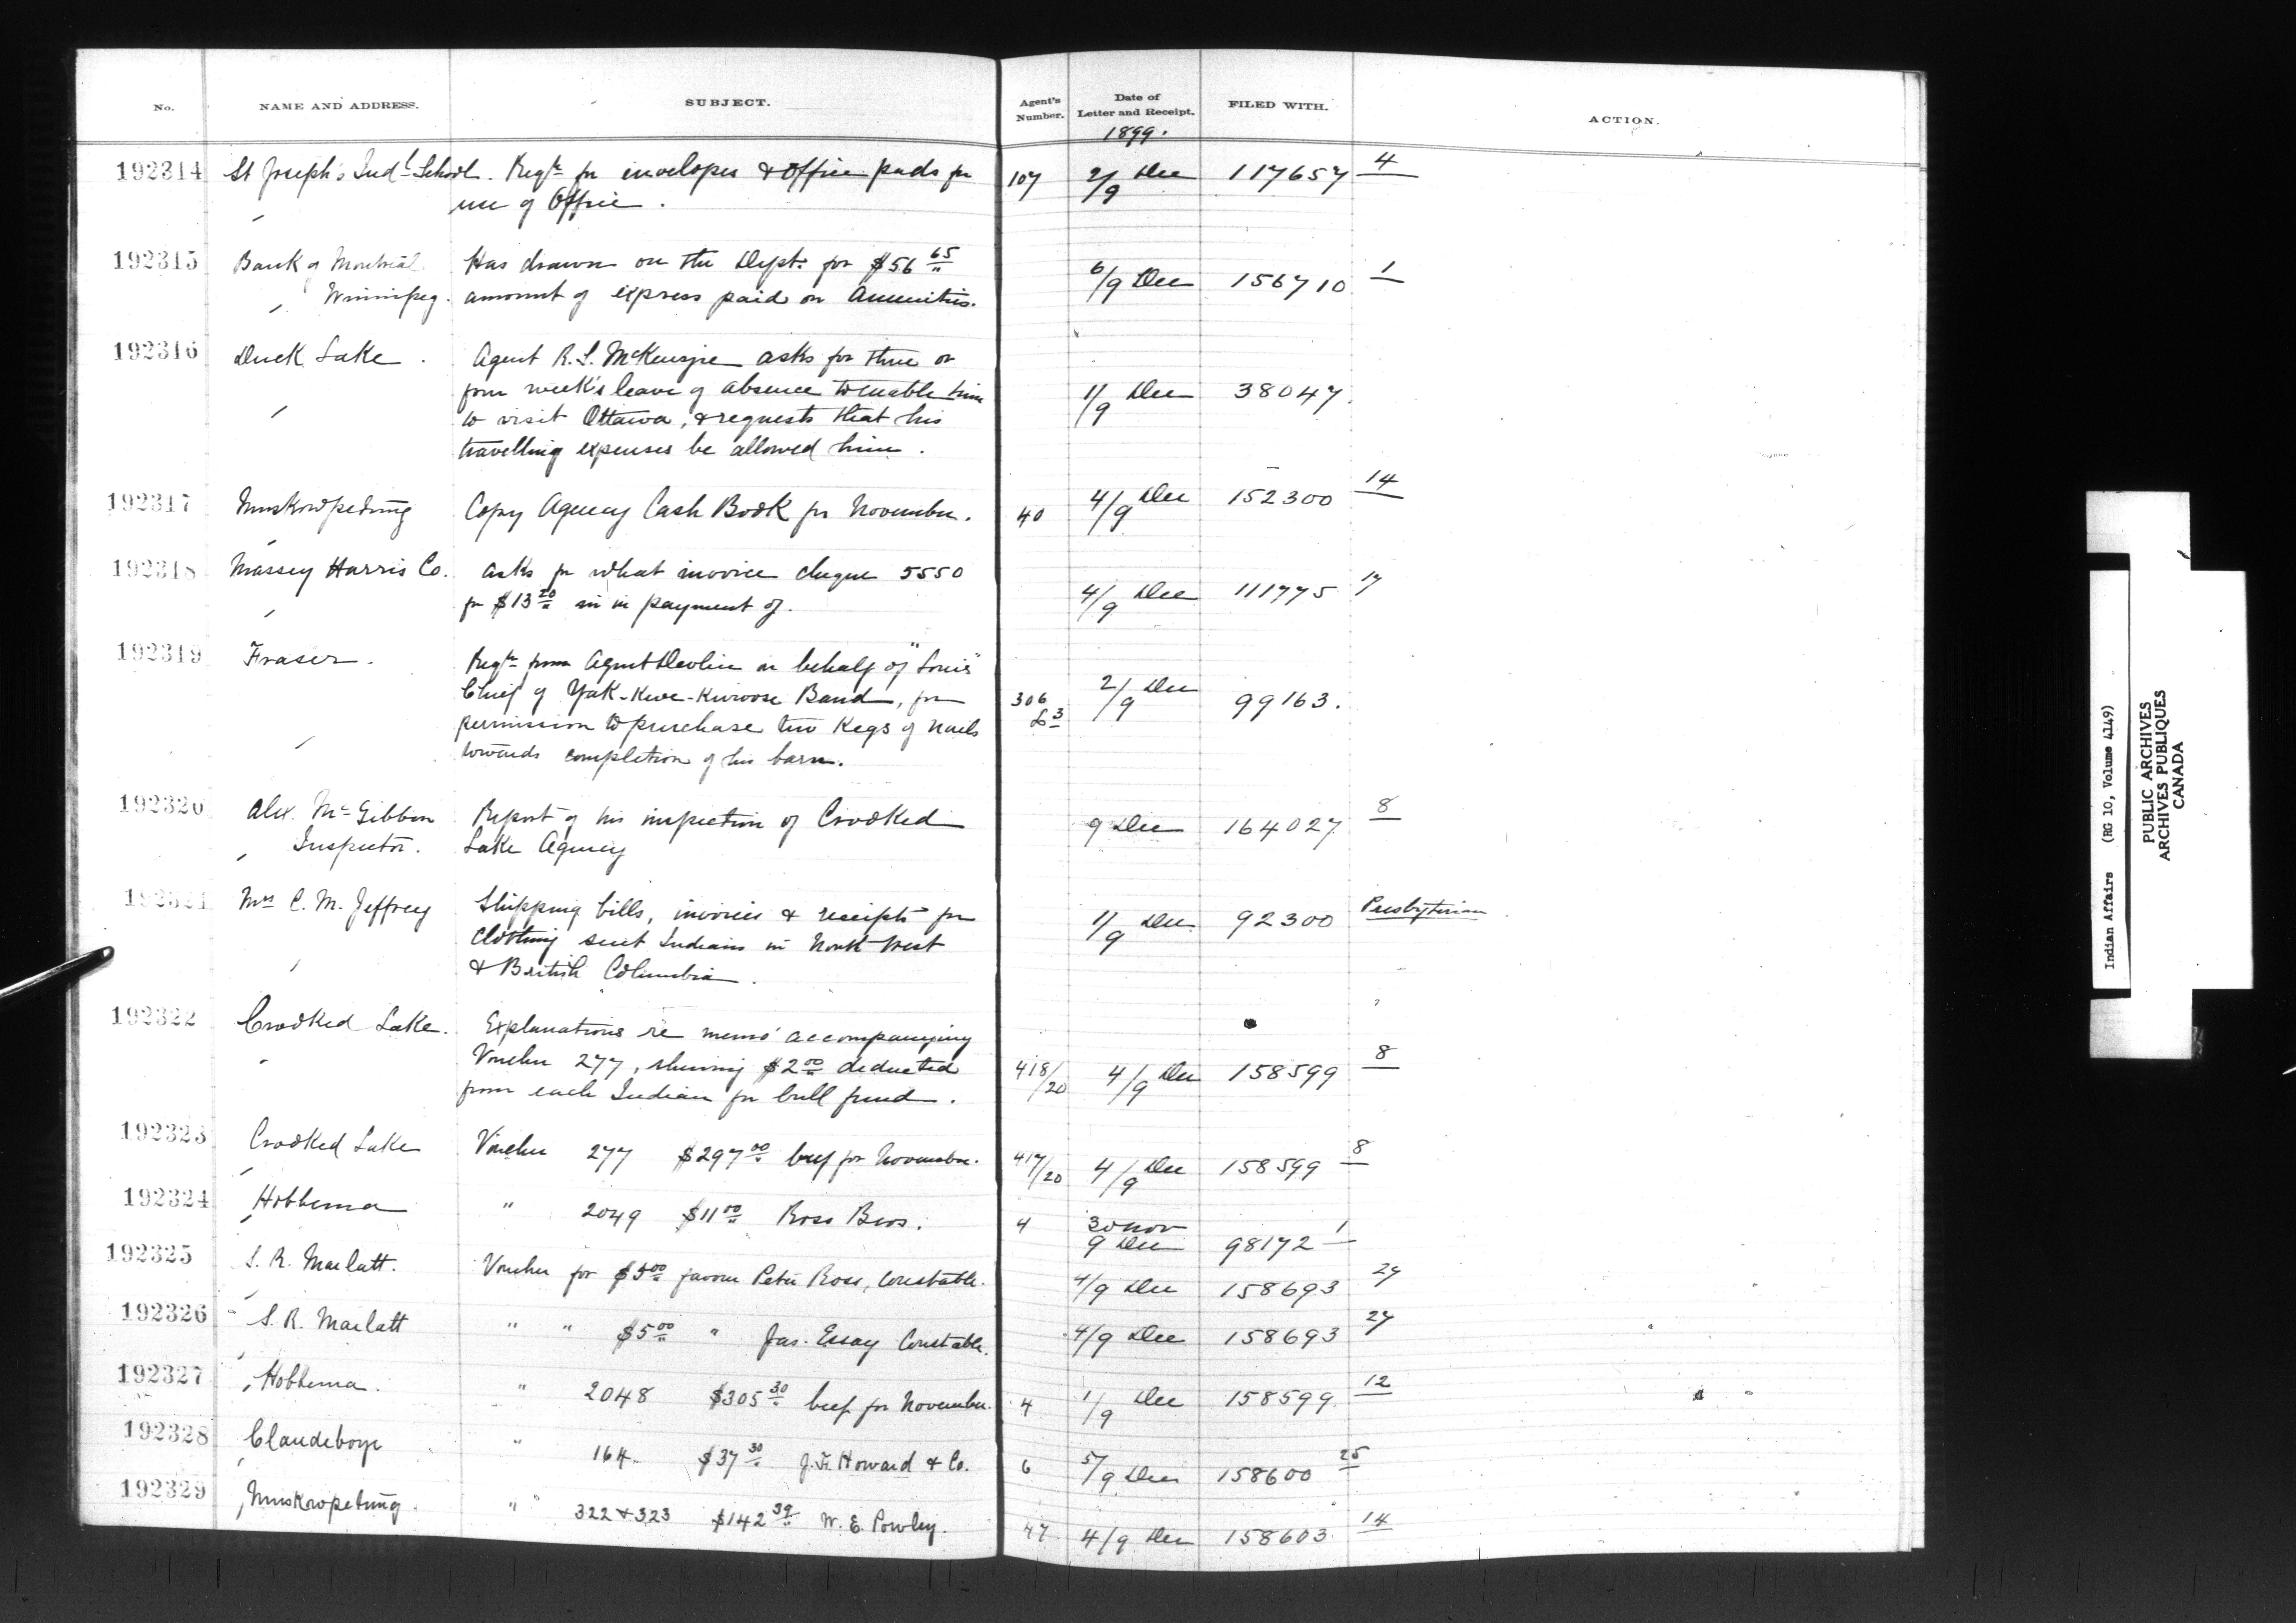 No. NAME AND ADDRESS. SUBJECT. Agent's Number. Date of Letter and Receipt. FILED WITH. ACTION.
1899.
192314 St Joseph's Indl School. Reqtn for envelopes & Office pads for 107 2/9 Dec 117657 4
use of Office.
192315 Bank of Montreal Has drawn on the Dept. for $56 65 6/9 Dec 156710 1
Winnipeg. amount of express paid on Annuities.
192316 Duck Lake. Agent R.S. McKenzie asks for three or
four week's leave of absence to enable him 1/9 Dec 38047
to visit Ottawa, & requests that his
travelling expenses be allowed him.
192317 Muskowpetung Copy Agency Cash Book for November. 40 4/9 Dec 152300 14
192318 Massey Harris Co. asks for what invoice cheque 5550
for $13 20 is in payment of. 4/9 Dec 111775 17
192319 Fraser. Reqtn from Agent Devlin on behalf of "Louis"
Chief of Yak-Kwe-Kwoose Band, for 306 L3 2/9 Dec 99163.
permission to purchase two Kegs of nails
towards completion of his barn.
192320 Alex. McGibbon Report of his inspection of Crooked 9 Dec 164027 8
Inspector. Lake Agency
192321 Mrs C. M. Jeffrey Shipping bills, invoices & receipts for 1/9 Dec. 92300 Presbyterian
Clothing sent Indians in North West
& British Columbia.
192322 Crooked Lake. Explanations re memo accompanying
Voucher 277, shewing $2 00 deducted 418/20 4/9 Dec 158599 8
from each Indian for bull fund.
192323 Crooked Lake Voucher 277 $297 00 beef for November. 417/20 4/9 Dec 158599 8
192324 Hobbema " 2049 $11 00 Ross Bros. 4 30 Nov 9 Dec 98172 1
192325 S. R. Marlatt. Voucher for $5 00 favour Peter Ross, Constable. 4/9 Dec 158693 27
192326 S. R. Marlatt " " $5 00 " Jas. Essay Constable. 4/9 Dec 158693 27
192327 Hobbema. " 2048 $305 30 beef for November. 4 1/9 Dec 158599 12
192328 Clandeboye " 164. $37 30 J. F. Howard & Co. 6 5/9 Dec 158600 25
192329 Muskowpetung. " 322 & 323 $142 39 W. E. Powley. 47 4/9 Dec 158603 14
Indian Affairs (RG 10, Volume 4149)
PUBLIC ARCHIVES
ARCHIVES PUBLIQUES
CANADA